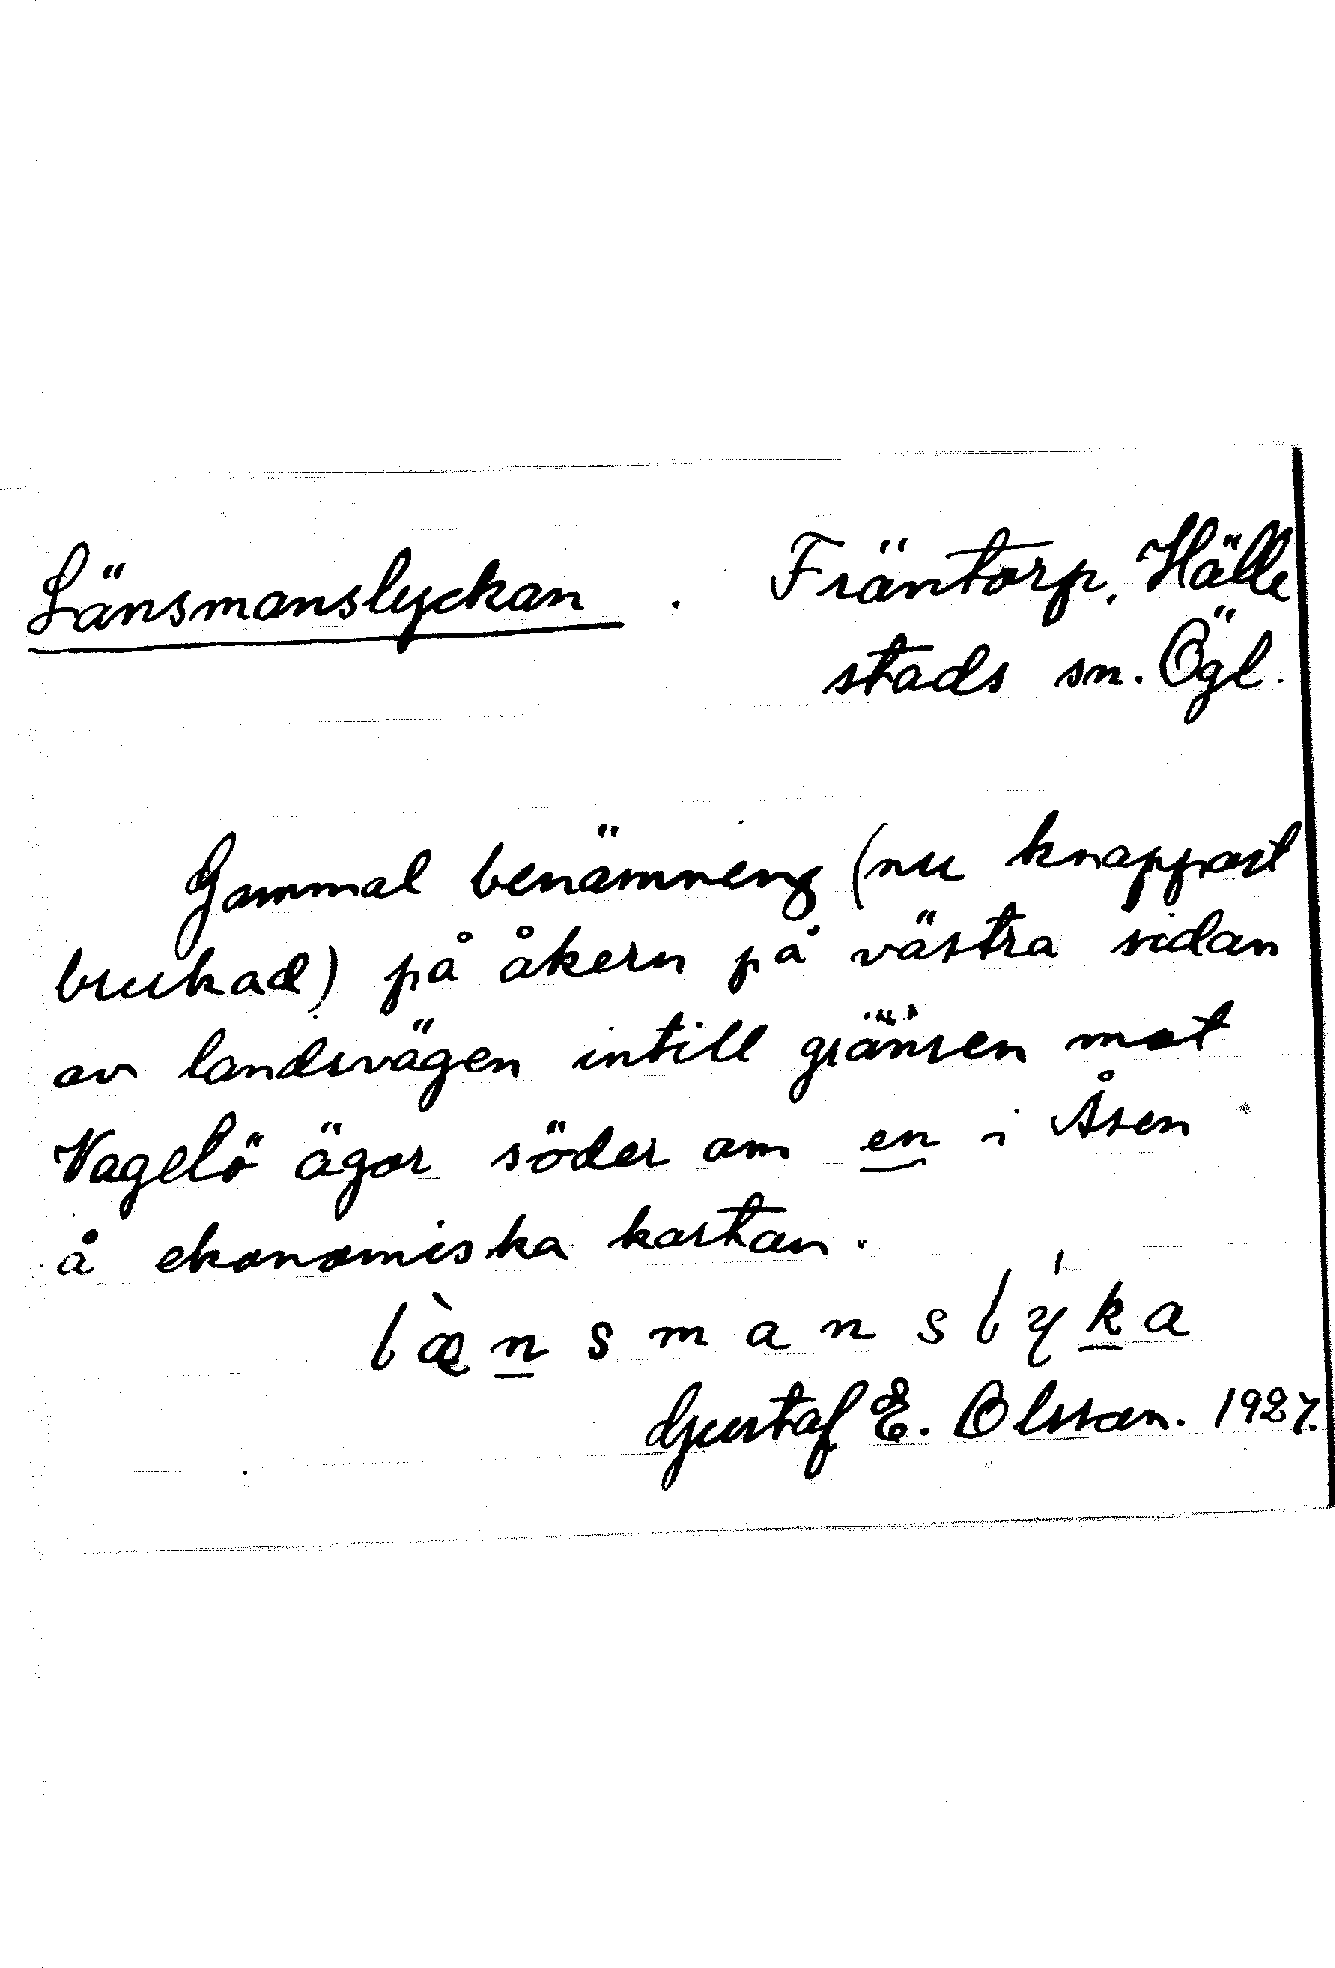 Länsmanslyckan. Fräntorp, Hälle
stads sn. Ögl.
Gammal benämneng (nu knappast
brukad) på åkern på västra sidan
av landsvägen intill gränsen mot
Vagelö ägor söder om en i Åsen
å ekonomiska kartan.
læ̀nsmanslýka
Gustaf E. Olsson. 1927.